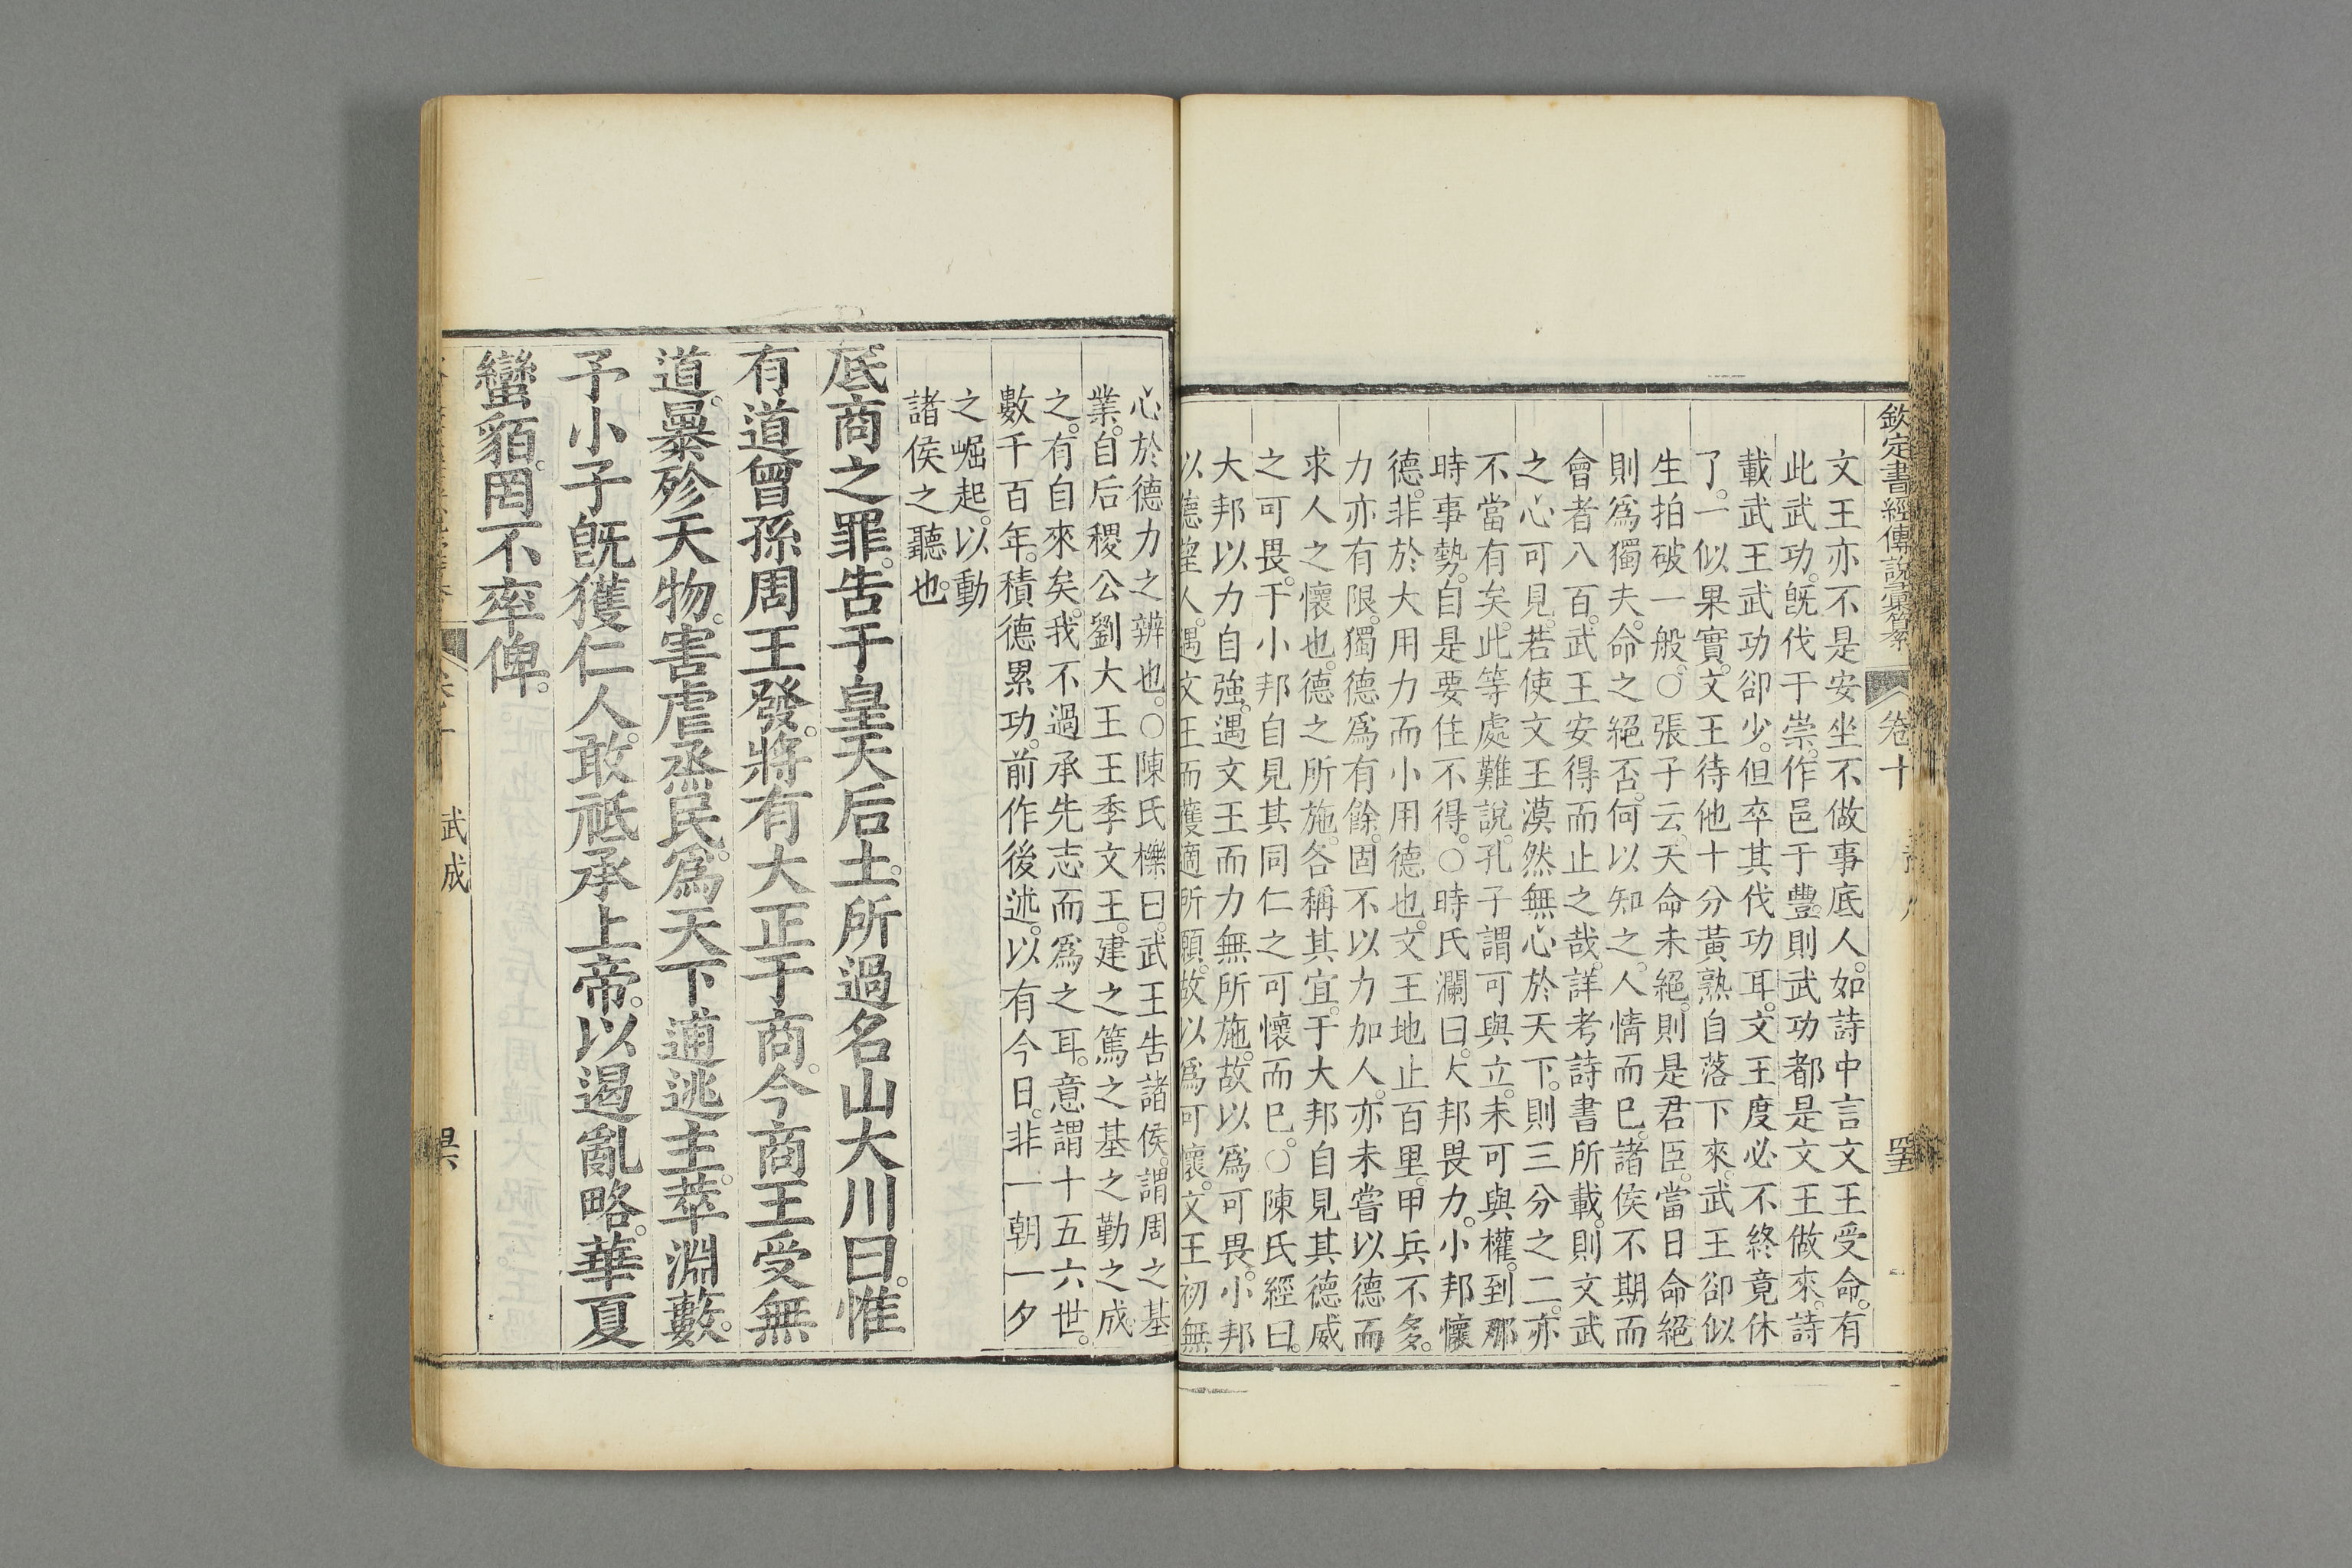 欽定書經傳說彙纂 卷十
文王亦不是安坐不做事底人。如詩中言文王受命。有
此武功。既伐于崇。作邑于豐。則武功都是文王做來。詩
載武王武功卻少。但卒其伐功耳。文王度必不終竟休
了。一似果實。文王待他十分黃熟自落下來。武王卻似
生拍破一般。○張子云。天命未絕。則是君臣。當日命絕
則爲獨夫。命之絕否。何以知之。人情而已。諸侯不期而
會者八百。武王安得而止之哉。詳考詩書所載。則文武
之心可見。若使文王漠然無心於天下。則三分之二。亦
不當有矣。此等處難說。孔子謂可與立。未可與權。到那
時事勢。自是要住不得。○時氏瀾曰。大邦畏力。小邦懷
德。非於大用力而小用德也。文王地止百里。甲兵不多。
力亦有限。獨德爲有餘。固不以力加人。亦未嘗以德而
求人之懷也。德之所施。各稱其宜。于大邦自見其德威
之可畏。于小邦自見其同仁之可懷而已。○陳氏經曰。
大邦以力自強。遇文王而力無所施。故以爲可畏。小邦
以德望人。遇文王而獲適所願。故以爲可懷。文王初無
心於德力之辨也。○陳氏櫟曰。武王告諸侯。謂周之基
業。自后稷公劉大王王季文王。建之篤之基之勤之成
之。有自來矣。我不過承先志而爲之耳。意謂十五六世。
數千百年。積德累功。前作後述。以有今日。非一朝一夕
之崛起。以動
諸侯之聽也。
底商之罪。告于皇天后土。所過名山大川曰。惟
有道曾孫周王發。將有大正于商。今商王受無
道。暴殄天物。害虐烝民。爲天下逋逃主。萃淵藪。
予小子既獲仁人。敢祗承上帝。以遏亂略。華夏
蠻貊。罔不率俾。
武成